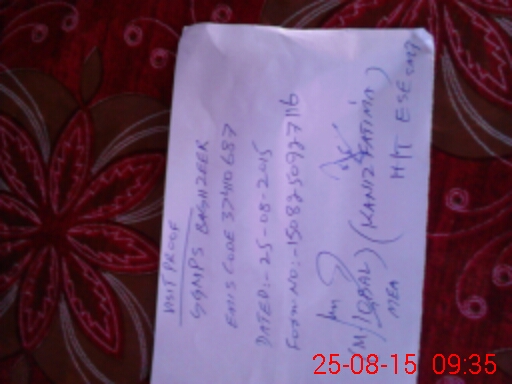 VISIT PROOF
GGMPS BAGHZEER
EMIS CODE 37410687
DATED:-25-08-2015
FORM NO:-
(M/IQBAL) (KANIZ FATIMA)
MEA H/T ESE
25-08-15 09:35